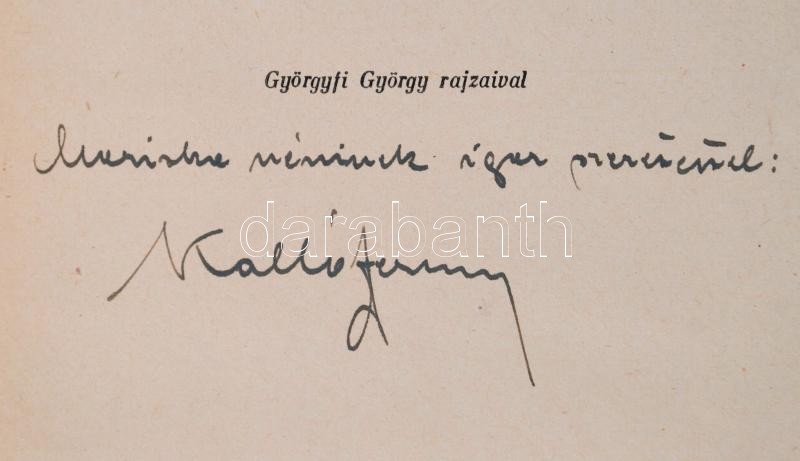 Györgyfi György rajzaival
Mariska néninek igaz szeretettel:
darabanth
Kalló Ferenc